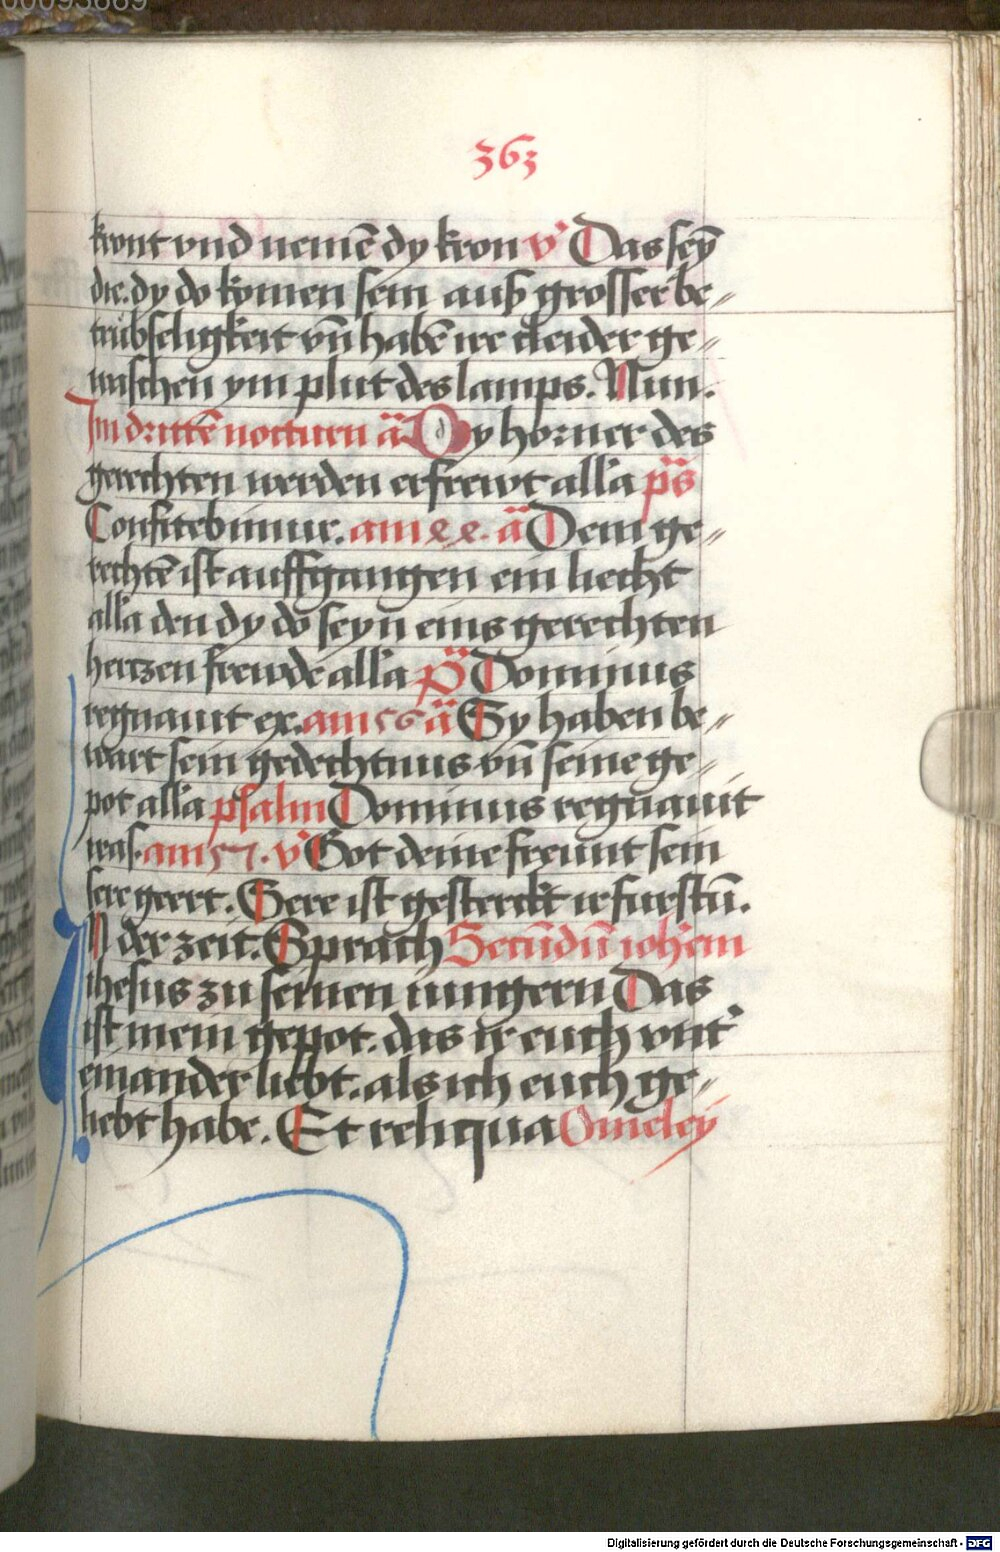 363
kront vnd nemē dy kron v̾ Das sey
die. dy do komen sein auß grosser be⸗
trübseligkeit vn̄ habē ire cleider ge⸗
waschen ym plut des lamps. Nun.
Im drittē nocturn a᷑ Dy horner des
gerechten werden erfrewt alla ps
Confitebimur. am 88. a᷑ Dem ge⸗
rechtē ist auffgangen ein liecht
alla den dy do seyn eins gerechten
hertzen frewde alla p̄ Dominus
regnauit ex. am 56 a᷑ Sy haben be⸗
wart sein gedechtnus vn̄ seine ge⸗
pot alla psalm Dominus regnauit
iras. am 57. v̾ Got deine freunt sein
sere geert. Sere ist gesterckt ir furstū.
IN der zeit. Sprach Secūdū ioh'em
ihesus zu seinen iungern Das
ist mein gepot. das ir euch vnt'
einander liebt. als ich euch ge⸗
liebt habe. Et reliqua Omeley
Digitalisierung gefördert durch die Deutsche Forschungsgemeinschaft - DFG